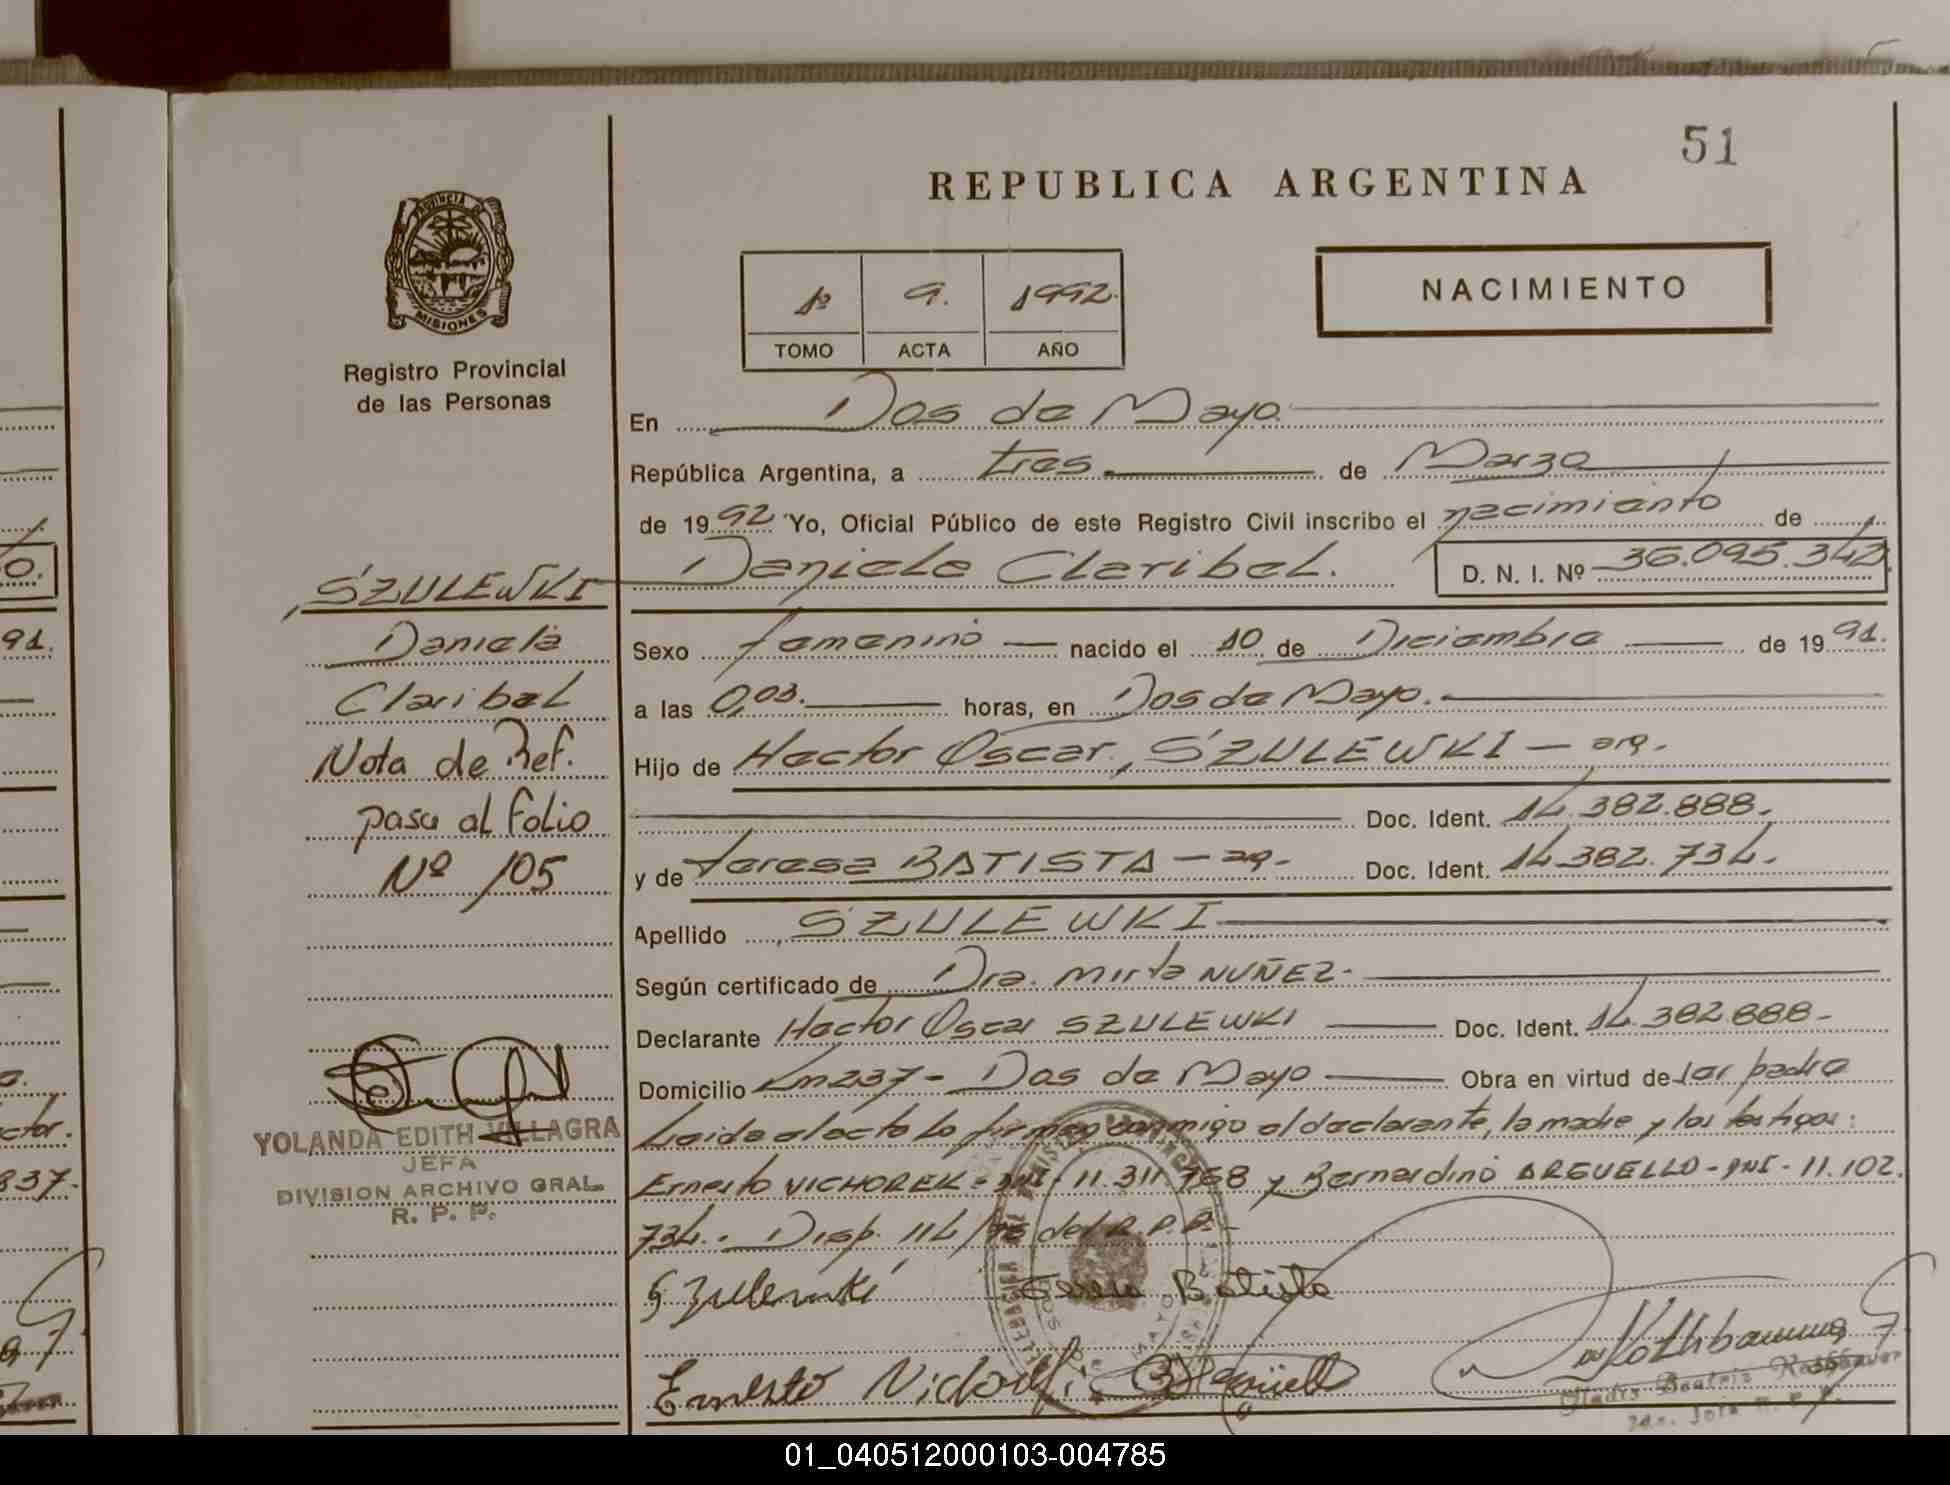 51
REPUBLICA ARGENTINA
PROVINCIA DE
MISIONES
Registro Provincial
de las Personas
1º 9. 1992.
TOMO ACTA AÑO
NACIMIENTO
En Dos de Mayo.
República Argentina, a tres de Marzo
de 1992 Yo, Oficial Público de este Registro Civil inscribo el nacimiento de
Daniela Claribel. D. N. I. Nº 36.095.342
SZULEWKI
Daniela
Claribel
Nota de Ref.
pasa al folio
Nº 105
Sexo femenino nacido el 10 de Diciembre de 1991.
a las 0,03. horas, en Dos de Mayo.
Hijo de Hector Oscar, SZULEWKI - arg.
Doc. Ident. 14.382.888.
y de teresa BATISTA - arg. Doc. Ident. 14.382.734.
Apellido SZULEWKI
Según certificado de Dra. Mirta NUÑEZ-
Declarante Hector Oscar SZULEWKI Doc. Ident. 14.382.888-
Domicilio Km 237- Dos de Mayo Obra en virtud de ser padre
Leida el acta la firman conmigo el declarante, la madre y los testigos:
Ernesto VICHOREK - DNI - 11.311.768 y Bernardino ARGUELLO - DNI - 11.102.
734.- Disp. 114/ del R.P.P.-
YOLANDA EDITH VILLAGRA
JEFA
DIVISION ARCHIVO GRAL.
R. P. P.
Szulewki Batista
Ernesto
Gladis Beatriz
91.
ctor.
837.
01_040512000103-004785